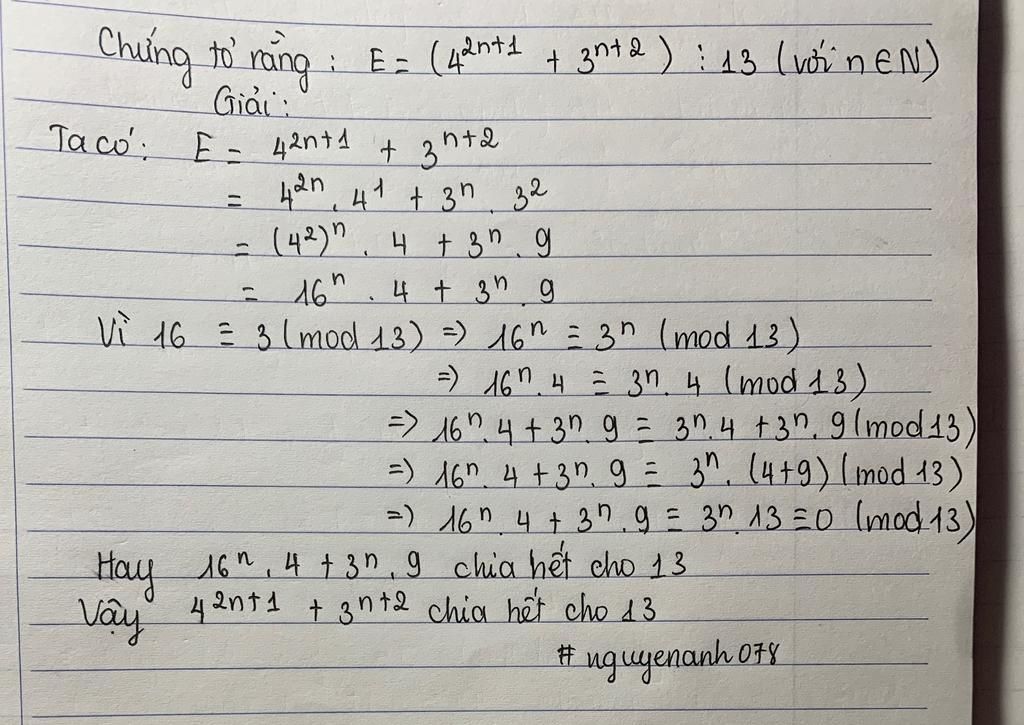 Chứng tỏ rằng : E = (4²ⁿ⁺¹ + 3ⁿ⁺²) ⋮ 13 (với n ∈ N)
Giải :
Ta có : E = 4²ⁿ⁺¹ + 3ⁿ⁺²
= 4²ⁿ . 4¹ + 3ⁿ . 3²
= (4²)ⁿ . 4 + 3ⁿ . 9
= 16ⁿ . 4 + 3ⁿ . 9
Vì 16 ≡ 3 (mod 13) => 16ⁿ ≡ 3ⁿ (mod 13)
=> 16ⁿ . 4 ≡ 3ⁿ . 4 (mod 13)
=> 16ⁿ . 4 + 3ⁿ . 9 ≡ 3ⁿ . 4 + 3ⁿ . 9 (mod 13)
=> 16ⁿ . 4 + 3ⁿ . 9 ≡ 3ⁿ . (4+9) (mod 13)
=> 16ⁿ . 4 + 3ⁿ . 9 ≡ 3ⁿ . 13 ≡ 0 (mod 13)
Hay 16ⁿ . 4 + 3ⁿ . 9 chia hết cho 13
Vậy 4²ⁿ⁺¹ + 3ⁿ⁺² chia hết cho 13
# nguyenanh078